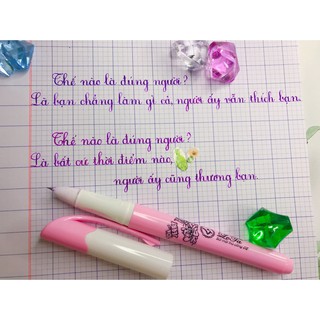 Thế nào là đúng người?
Là bạn chẳng làm gì cả, người ấy vẫn thích bạn.
Thế nào là đúng người?
Là bất cứ thời điểm nào,
người ấy cũng thương bạn.